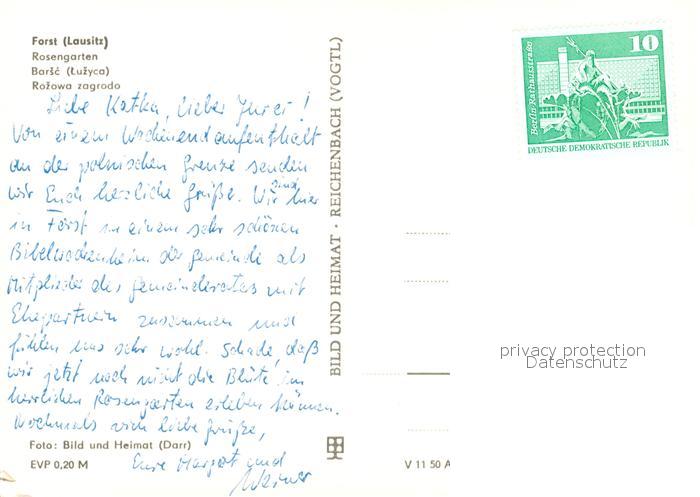 Forst (Lausitz)
Rosengarten
Baršć (Łužyca)
Rožowa zagrodo
Liebe Katka, lieber Juraj!
Von einem Wochenendaufenthalt
an der polnischen Grenze senden
wir Euch herzliche Grüße. Wir sind hier
in Forst in einem sehr schönen
Bibelwochenheim der Gemeinde als
Mitglieder des Gemeinderates mit
Ehepartnern zusammen und
fühlen uns sehr wohl. Schade, daß
wir jetzt noch nicht die Blüte im
herrlichen Rosengarten erleben können.
Nochmals viele liebe Grüße,
Eure Margot und
Werner
Foto: Bild und Heimat (Darr)
EVP 0,20 M
BILD UND HEIMAT · REICHENBACH (VOGTL)
V 11 50 A
10
Berlin-Rathausstraße
DEUTSCHE DEMOKRATISCHE REPUBLIK
privacy protection
Datenschutz